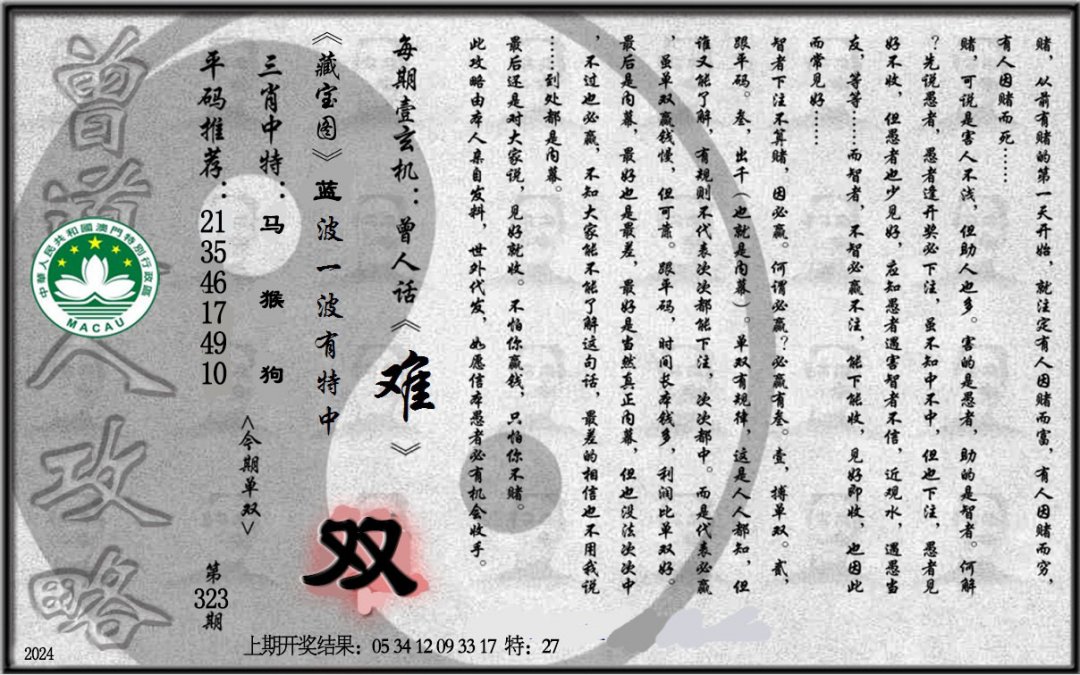 赌，从前有赌的第一天开始，就注定有人因赌而富，有人因赌而穷，
有人因赌而死……
赌，可说是害人不浅，但助人也多。害的是愚者，助的是智者。何解
？先说愚者，愚者逢开奖必下注，虽不知中不中，但也下注，愚者见
好不收，但愚者也少见好，应知愚者遇害智者不信，近观水，遇愚当
友，等等……而智者，不智必赢不注，能下能收，见好即收，也因此
而常见好……
智者下注不算赌，因必赢。何谓必赢？必赢有叁。壹，搏单双。贰，
跟平码。叁，出千（也就是内幕）。单双有规律，这是人人都知，但
谁又能了解，有规则不代表次次都能下注，次次都中。而是代表必赢
，虽单双赢钱慢，但可靠。跟平码，时间长本钱多，利润比单双好。
最后是内幕，最好也是最差，最好是当然真正内幕，但也没法次次中
，不过也必赢，不知大家能不能了解这句话，最差的相信也不用我说
……到处都是内幕。
最后还是对大家说，见好就收。不怕你赢钱，只怕你不赌。
此攻略由本人亲自发料，世外代发，如愿信本愚者必有机会收手。
每期壹玄机：曾人话《难》
《藏宝图》蓝波一波有特中
双
三肖中特：马 猴 狗
<今期单双>
平码推荐：21 35 46 17 49 10
第323期
曾道人攻略
中華人民共和國澳門特別行政區
MACAU
2024
上期开奖结果：05 34 12 09 33 17 特：27